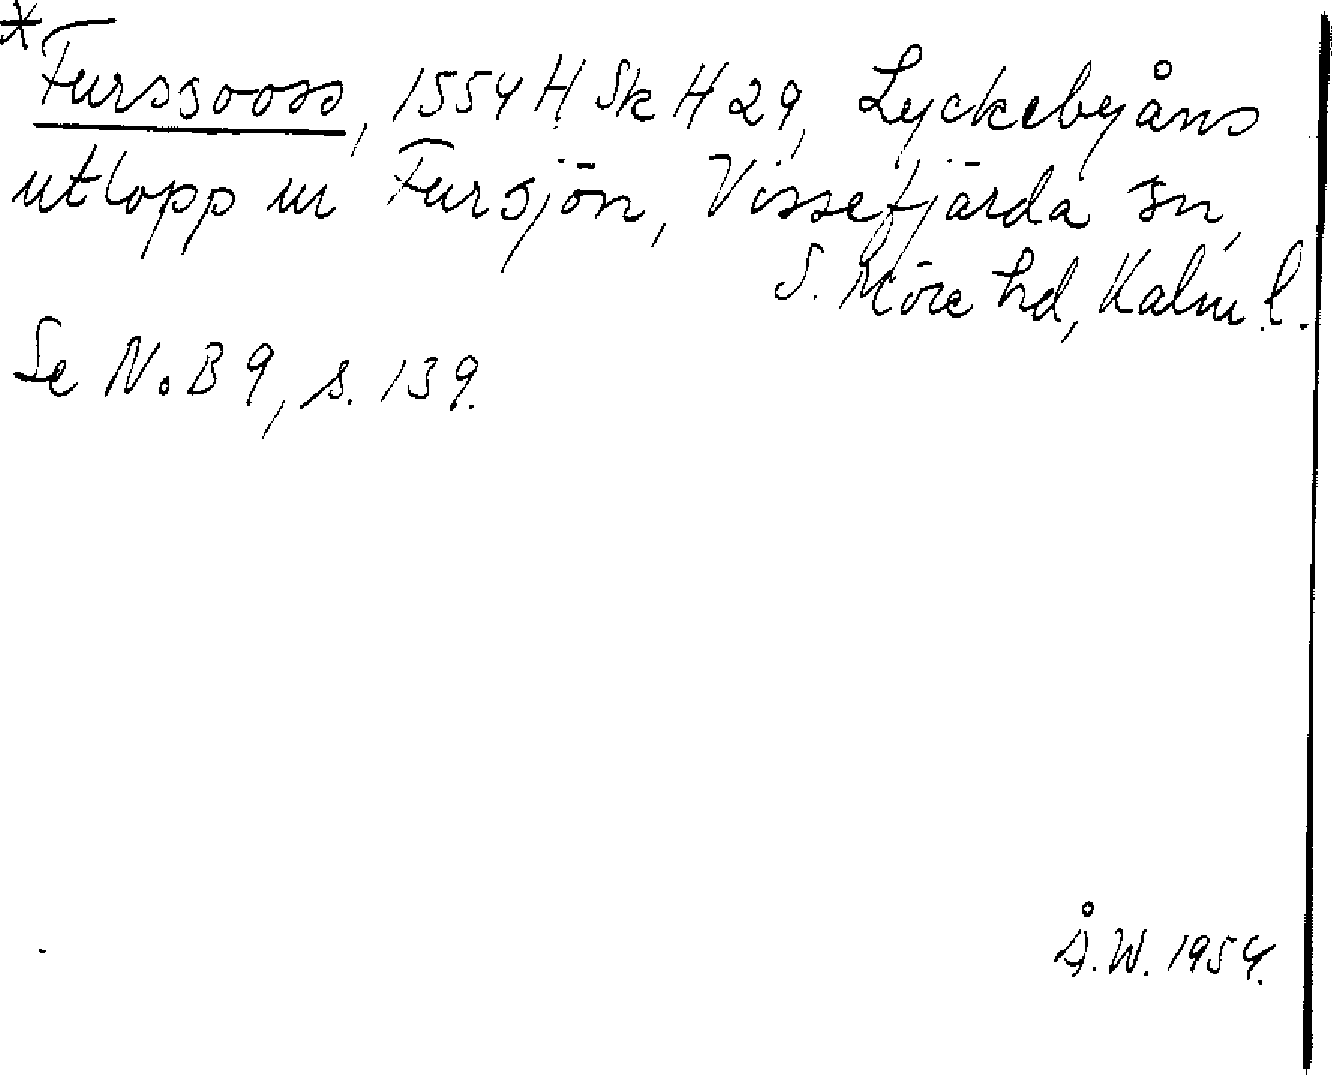 * Furssooss, 1554 H Sk H 29, Lyckebyåns
utlopp ur Fursjön, Vissefjärda sn,
S. Möre hd, Kalm. l.
Se NoB 9, s. 139.
Å.W. 1954.